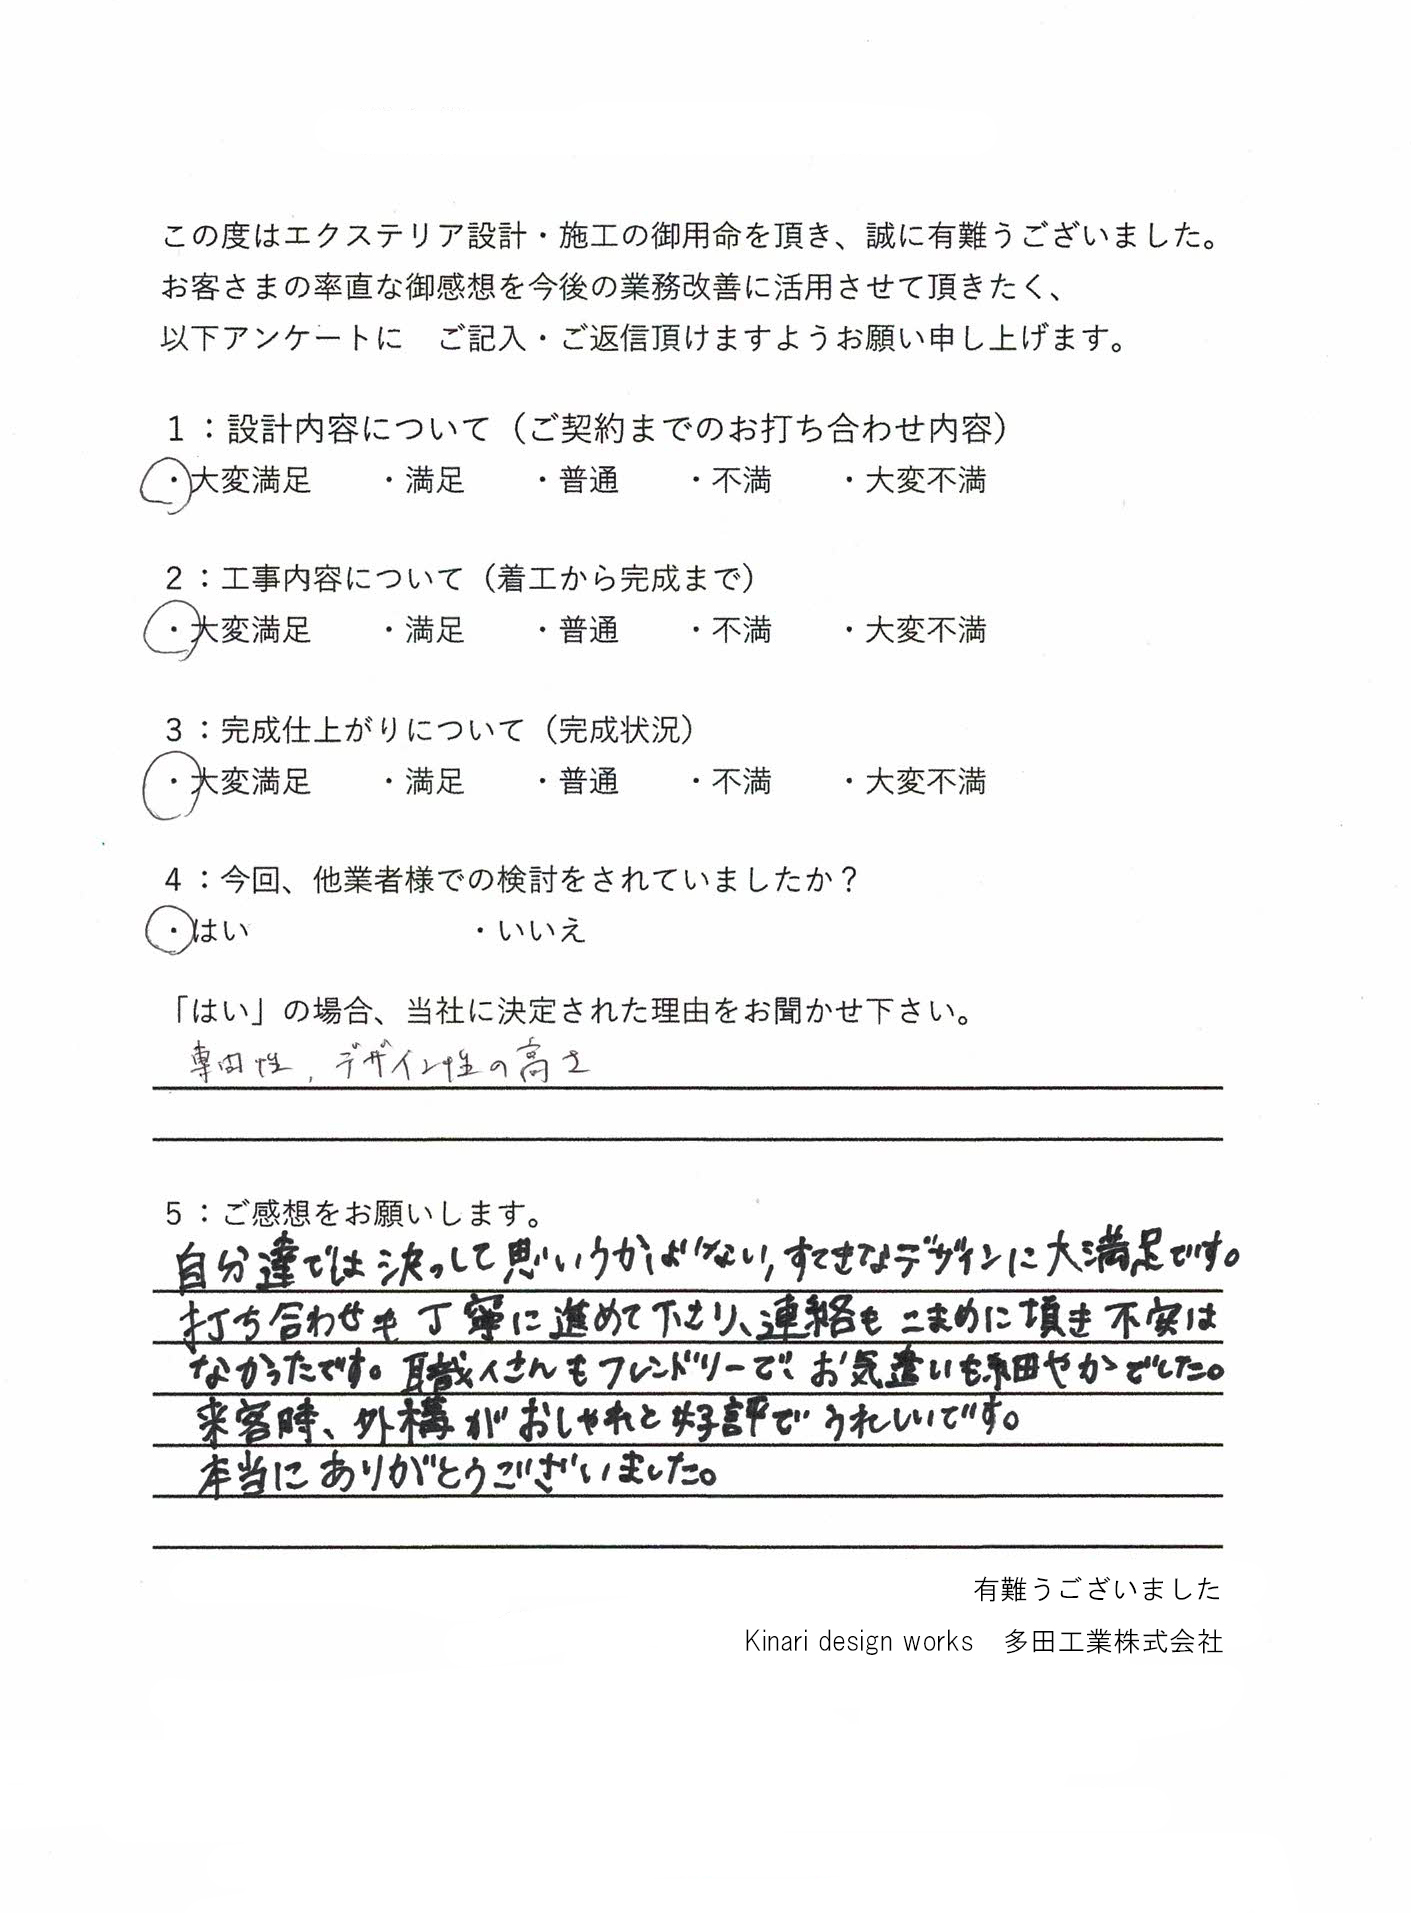 この度はエクステリア設計・施工の御用命を頂き、誠に有難うございました。
お客さまの率直な御感想を今後の業務改善に活用させて頂きたく、
以下アンケートに　ご記入・ご返信頂けますようお願い申し上げます。
1：設計内容について（ご契約までのお打ち合わせ内容）
・大変満足　　・満足　　・普通　　・不満　　・大変不満
2：工事内容について（着工から完成まで）
・大変満足　　・満足　　・普通　　・不満　　・大変不満
3：完成仕上がりについて（完成状況）
・大変満足　　・満足　　・普通　　・不満　　・大変不満
4：今回、他業者様での検討をされていましたか？
・はい　　　　　　　・いいえ
「はい」の場合、当社に決定された理由をお聞かせ下さい。
専門性、デザイン性の高さ
5：ご感想をお願いします。
自分達では決っして思いうかばない、すてきなデザインに大満足です。
打ち合わせも丁寧に進めて下さり、連絡もこまめに頂き不安は
なかったです。職人さんもフレンドリーで、お気遣いも細やかでした。
来客時、外構がおしゃれと好評でうれしいです。
本当にありがとうございました。
有難うございました
Kinari design works　多田工業株式会社